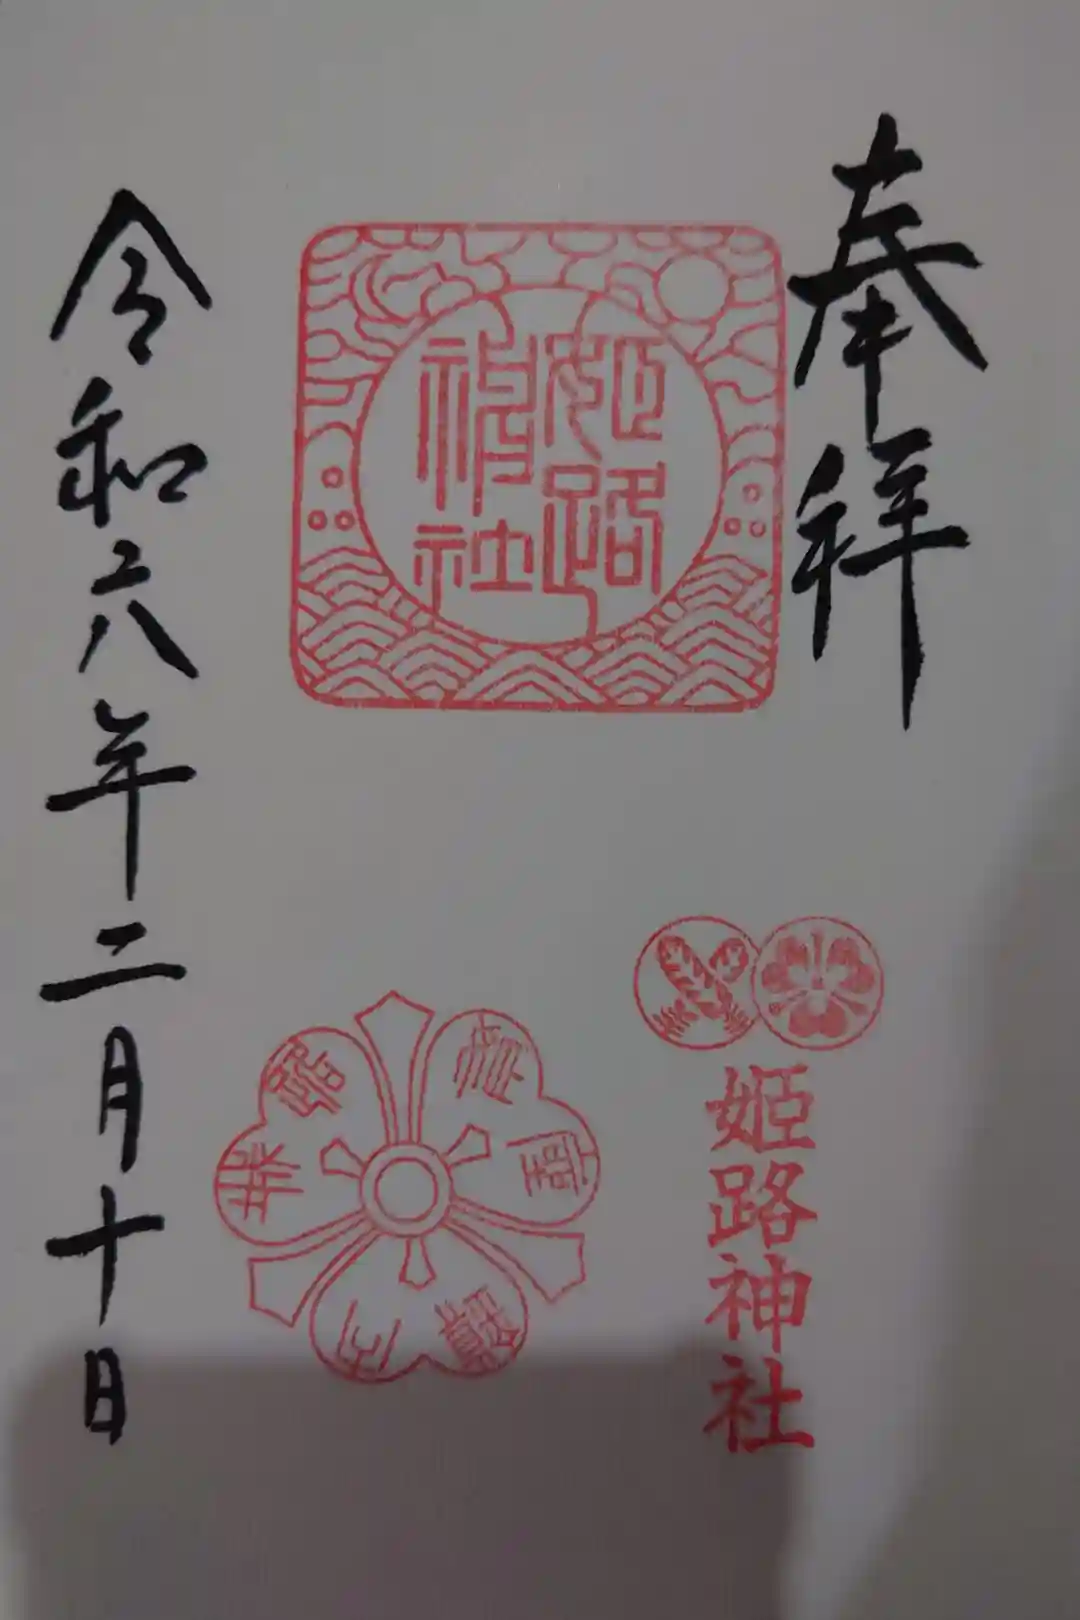 奉拝
姫路
神社
姫路神社
令和六年二月十日